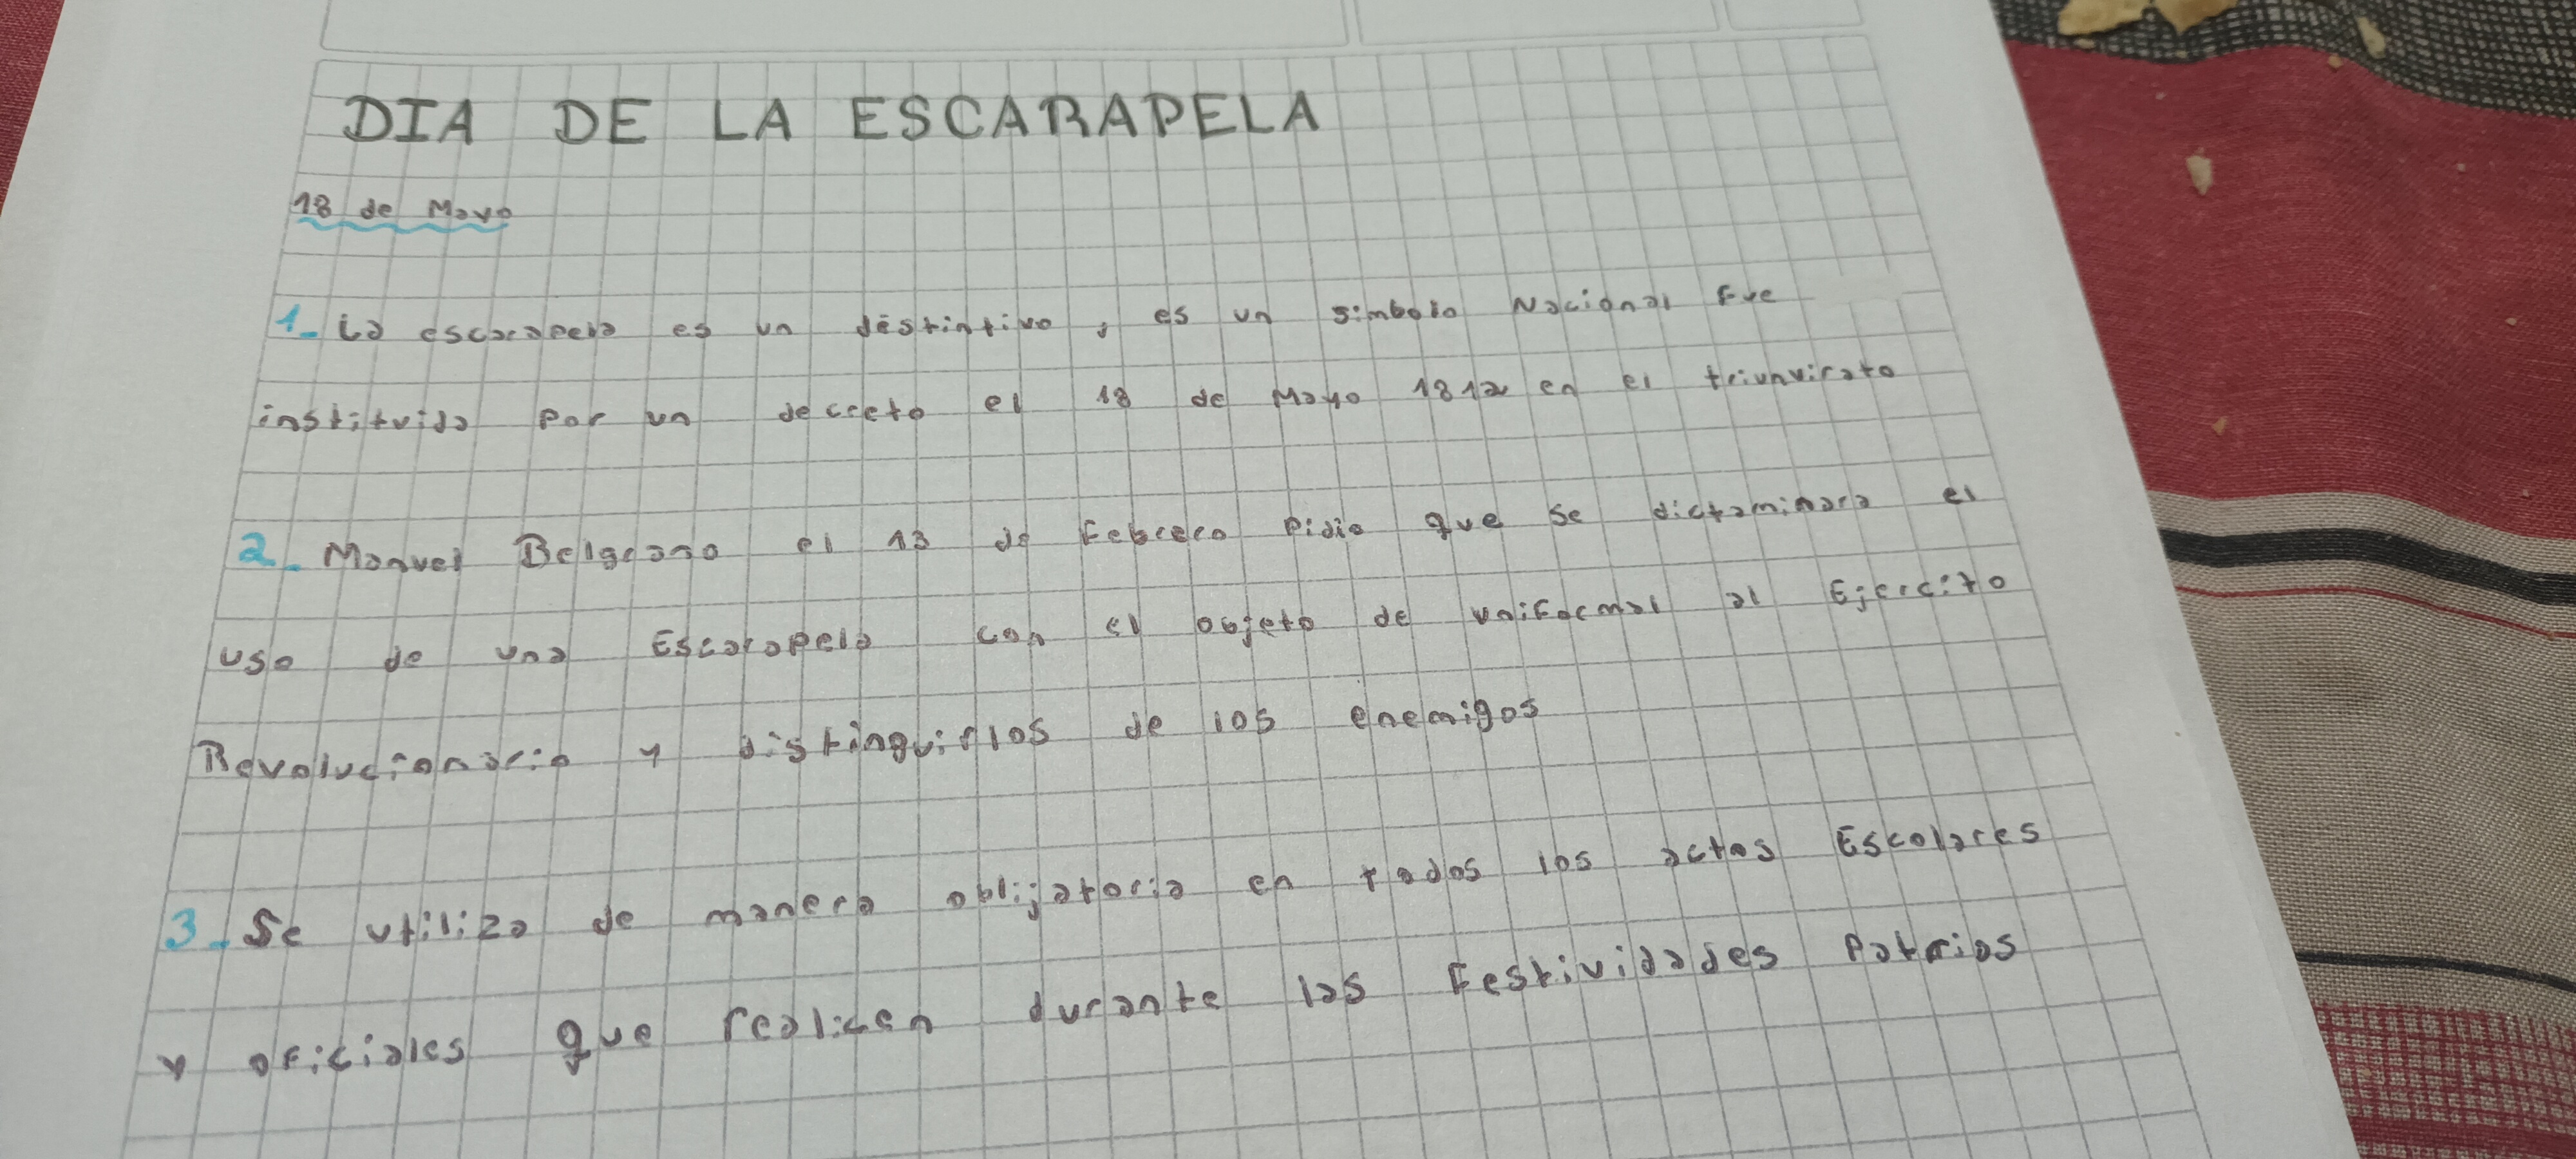 DIA DE LA ESCARAPELA
18 de Mayo
1- La escarapela es un destintivo, es un simbolo Nacional Fue
instituida por un decreto el 18 de Mayo 1812 en el triunvirato
2- Manuel Belgrano el 13 de Febrero Pidio que se dictaminara el
uso de una Escarapela con el objeto de uniformal al Ejercito
Revolucionario y distinguirlos de los enemigos
3- Se utiliza de manera oblijatoria en todos los actos Escolares
y oficiales que realicen durante las Festividades Patrias